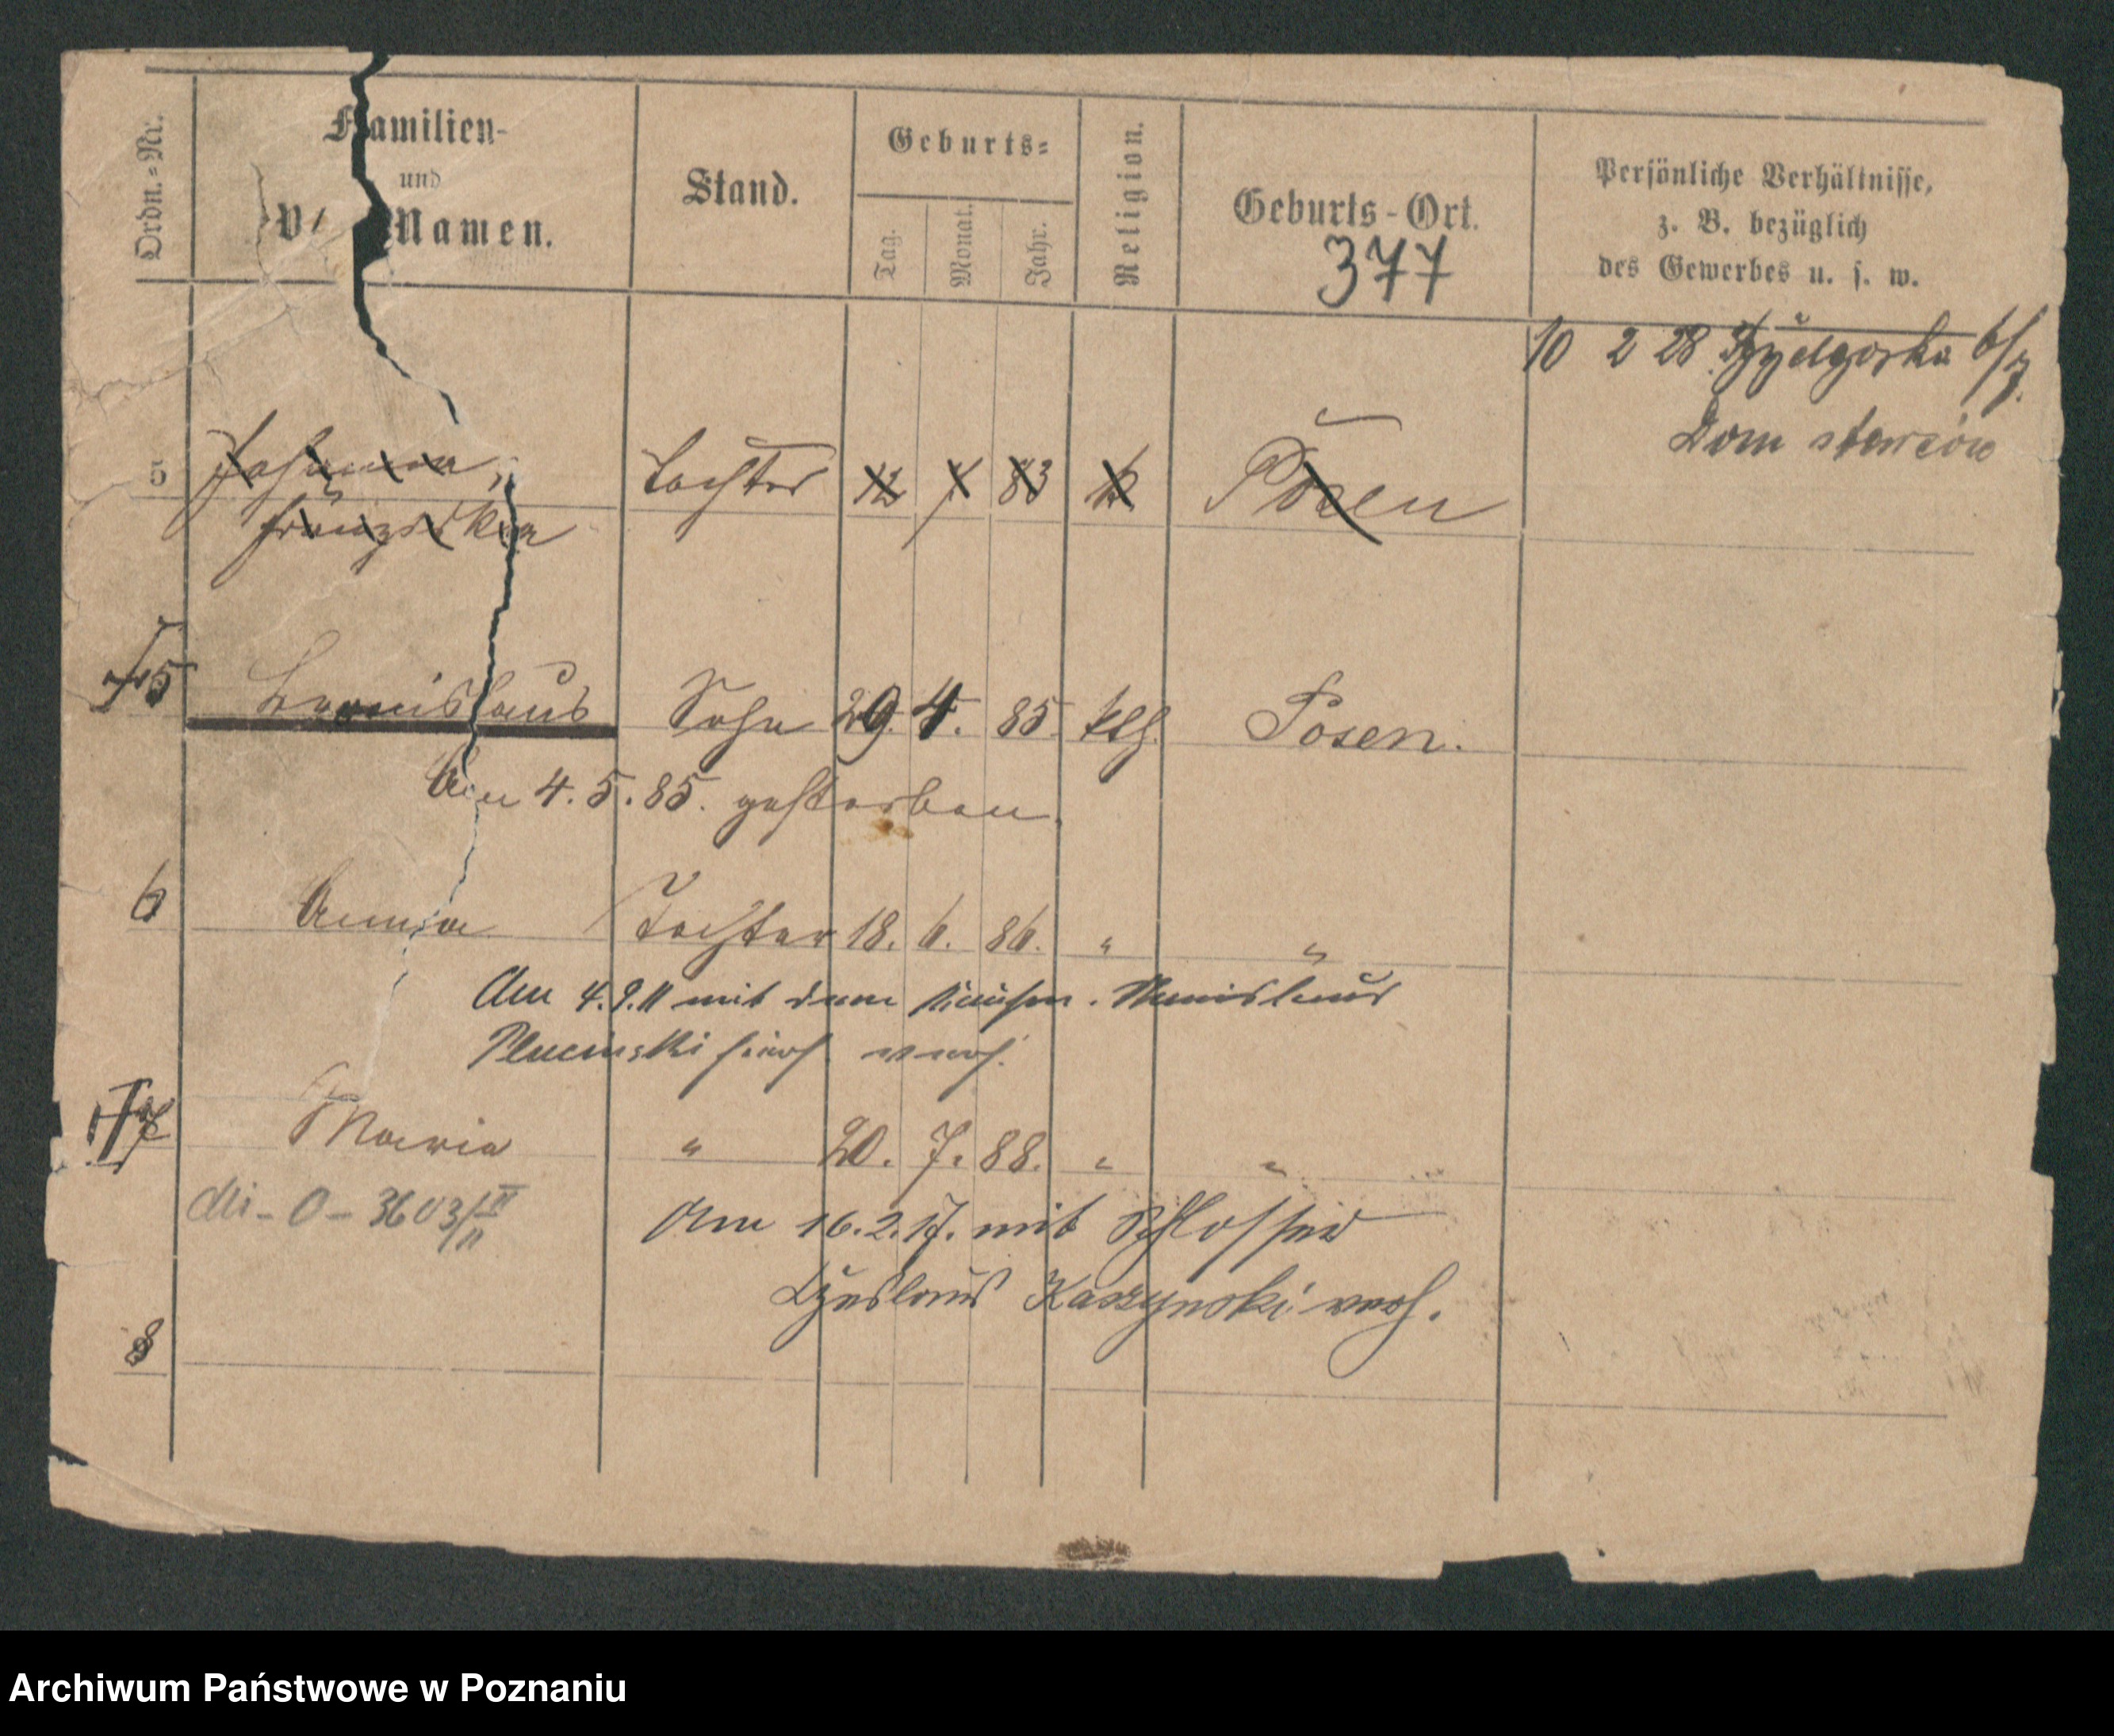 Ordn.-Nr.
Familien-
und
Vo Namen.
Stand.
Geburts-
Tag.
Monat.
Jahr.
Religion.
Geburts-Ort.
377
Persönliche Verhältnisse,
z. B. bezüglich
des Gewerbes u. s. w.
10 2 28
Dom starców
Johanna Tochter 12 7 83 k. Posen
Franziska
5 Sohn 29. 4. 85. kth. Posen.
Am 4.5.85. gestorben.
6 Anna Tochter 18. 6. 86. " "
Am 4.9.11 mit dem Kaufm. Stanislaus
Plucinski hier verh.
7 Maria " 20. 7. 88. " "
Am 16.2.17. mit Schlosser
Czeslaus Kaszynski verh.
8
Archiwum Państwowe w Poznaniu